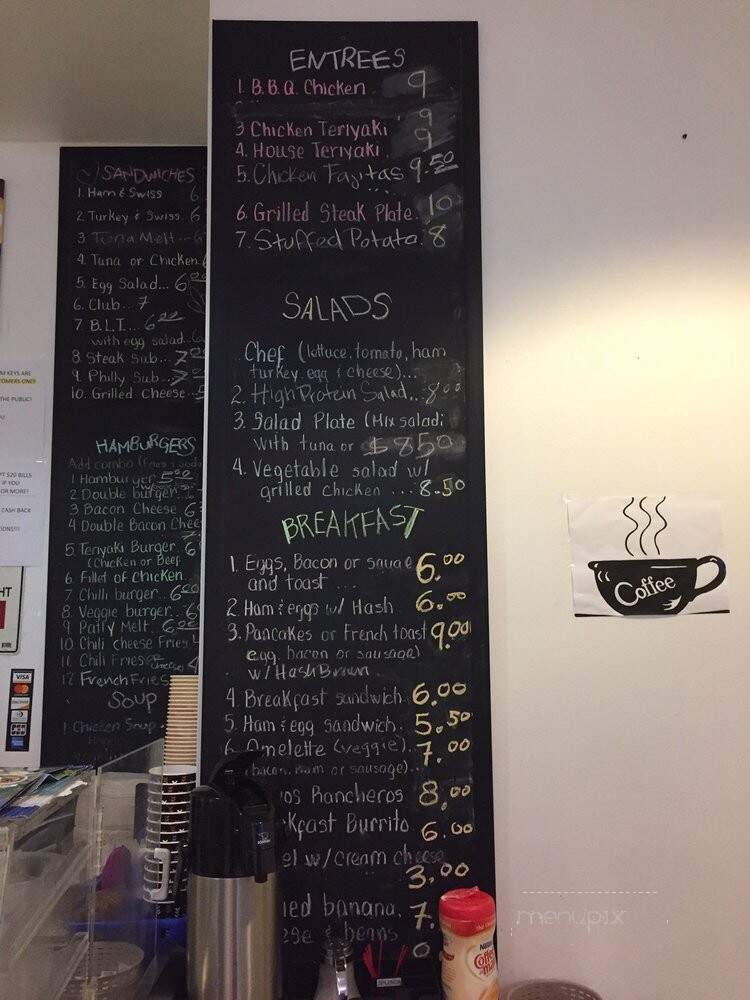 SANDWICHES
1. Ham & Swiss 6
2. Turkey & Swiss 6
3. Tuna Melt
4. Tuna or Chicken
5. Egg Salad... 6
6. Club.. 7
7. B.L.T... 6.00
with egg salad
8 Steak Sub.. 7
9. Philly Sub.. 7
10. Grilled Cheese
HAMBURGERS
Add combo (fries & soda
1 Hamburger 5.50
2 Double burger
3 Bacon Cheese 6
4 Double Bacon Chee
5. Teriyaki Burger 6
(Chicken or Beef
6. Fillet of chicken
7. Chilli burger.. 6.00
8. Veggie burger.. 6
9 Patty Melt. 6.00
10 Chili cheese Fries
11 Chili Fries
12 French Fries
SOUP
1 Chicken Soup
ENTREES
1. B.B.Q. Chicken 9
3 Chicken Teriyaki 9
4. House Teriyaki 9
5. Chicken Fajitas 9.50
6. Grilled Steak Plate. 10
7. Stuffed Potato. 8
SALADS
Chef (lettuce, tomato, ham
turkey, egg & cheese)...
2. High Protein Salad.. 8.00
3. Salad Plate (Mix salad;
with tuna or $8.50
4. Vegetable salad w/
grilled chicken ... 8.50
BREAKFAST
1. Eggs, Bacon or 6.00
and toast ...
2 Ham & eggs w/ Hash 6.00
3. Pancakes or French toast 9.00
egg, bacon or sausage)
w/ Hash Brown
4. Breakfast sandwich. 6.00
5 Ham & egg sandwich. 5.50
6. Omelette (veggie).. 7.00
(bacon, ham or sausage)...
os Rancheros 8.00
kfast Burrito 6.00
el w/cream cheese
3.00
ied banana. 7.
ese & beans
0
M KEYS ARE
TOMERS ONLY
THE PUBLIC!
PT $20 BILLS
IF YOU
OR MORE!
CASH BACK
HT
VISA
Coffee
Nestle
Coffee
mate
SPLENDA
menupix